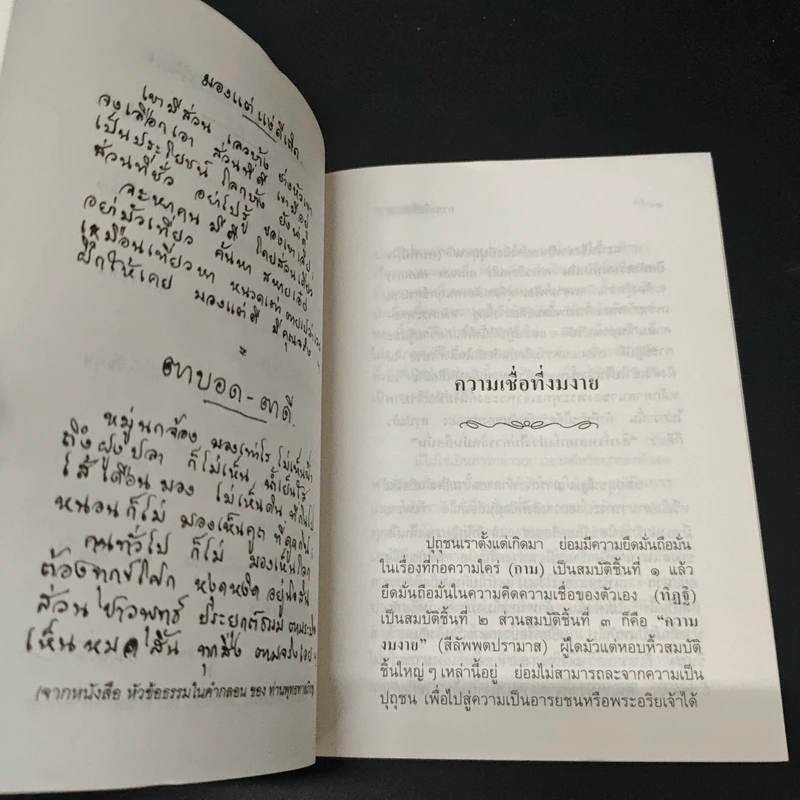 มองแต่แง่ดีเถิด
เขามีส่วน เลวบ้าง ช่างหัวเขา
จงเลือกเอา ส่วนที่ดี เขามีอยู่
เป็นประโยชน์ โลกบ้าง ยังน่าดู
ส่วนที่ชั่ว อย่าไปรู้ ของเขาเลย
จะหาคน มีดี โดยส่วนเดียว
อย่ามัวเที่ยว ค้นหา สหายเอ๋ย
เหมือนเที่ยวหา หนวดเต่า ตายเปล่า
ฝึกให้เคย มองแต่ดี มีคุณจริง
ตาบอด-ตาดี.
หมู่นกจ้อง มองเท่าไร ไม่เห็นฟ้า
ถึงฝูงปลา ก็ไม่เห็น น้ำเย็นใส
ไส้เดือนมอง ไม่เห็นดิน ที่กินไป
หนอนก็ไม่ มองเห็นคูต ที่ดูดกิน
คนทั่วไป ก็ไม่ มองเห็นโลก
ต้องทุกข์โศก หงุดหงิด อยู่นิจสิน
ส่วนชาวพุทธ ประยุกต์ธรรม ตาม
เห็นหมดสิ้น ทุกสิ่ง ตามจริงเอย
(จากหนังสือ หัวข้อธรรมในคำกลอน ของ ท่านพุทธทาส
ความเชื่อที่งมงาย
ปุถุชนเราตั้งแต่เกิดมา ย่อมมีความยึดมั่นถือมั่น
ในเรื่องที่ก่อความใคร่ (กาม) เป็นสมบัติชิ้นที่ ๑ แล้ว
ยึดมั่นถือมั่นในความคิดความเชื่อของตัวเอง (ทิฏฐิ)
เป็นสมบัติชิ้นที่ ๒ ส่วนสมบัติชิ้นที่ ๓ ก็คือ “ความ
งมงาย” (สีลัพพตปรามาส) ผู้ใดมัวแต่หอบหิ้วสมบัติ
ชิ้นใหญ่ ๆ เหล่านี้อยู่ ย่อมไม่สามารถละจากความเป็น
ปุถุชน เพื่อไปสู่ความเป็นอารยชนหรือพระอริยเจ้าได้